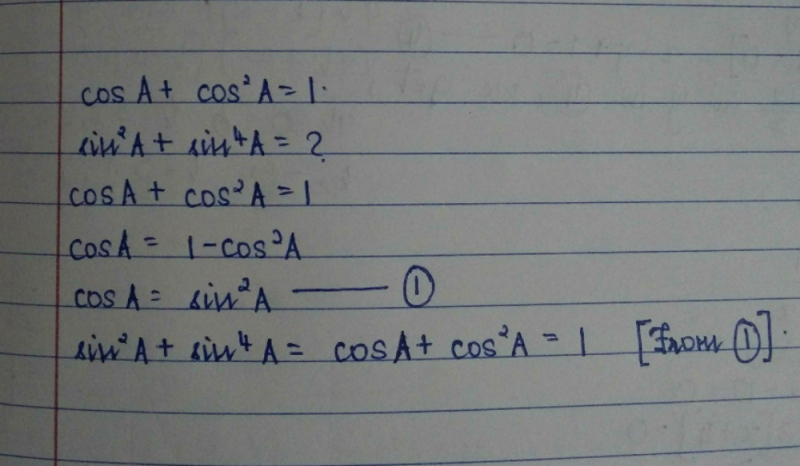 cos A + cos²A = 1.
sin²A + sin⁴A = ?
cos A + cos²A = 1
cos A = 1 - cos²A
cos A = sin²A —— ①
sin²A + sin⁴A = cos A + cos²A = 1 [From ①].